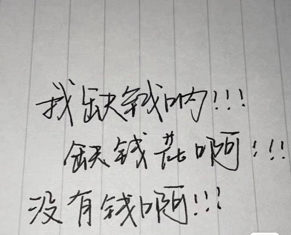 我缺钱呐!!!
缺钱花啊!!!
没有钱啊!!!